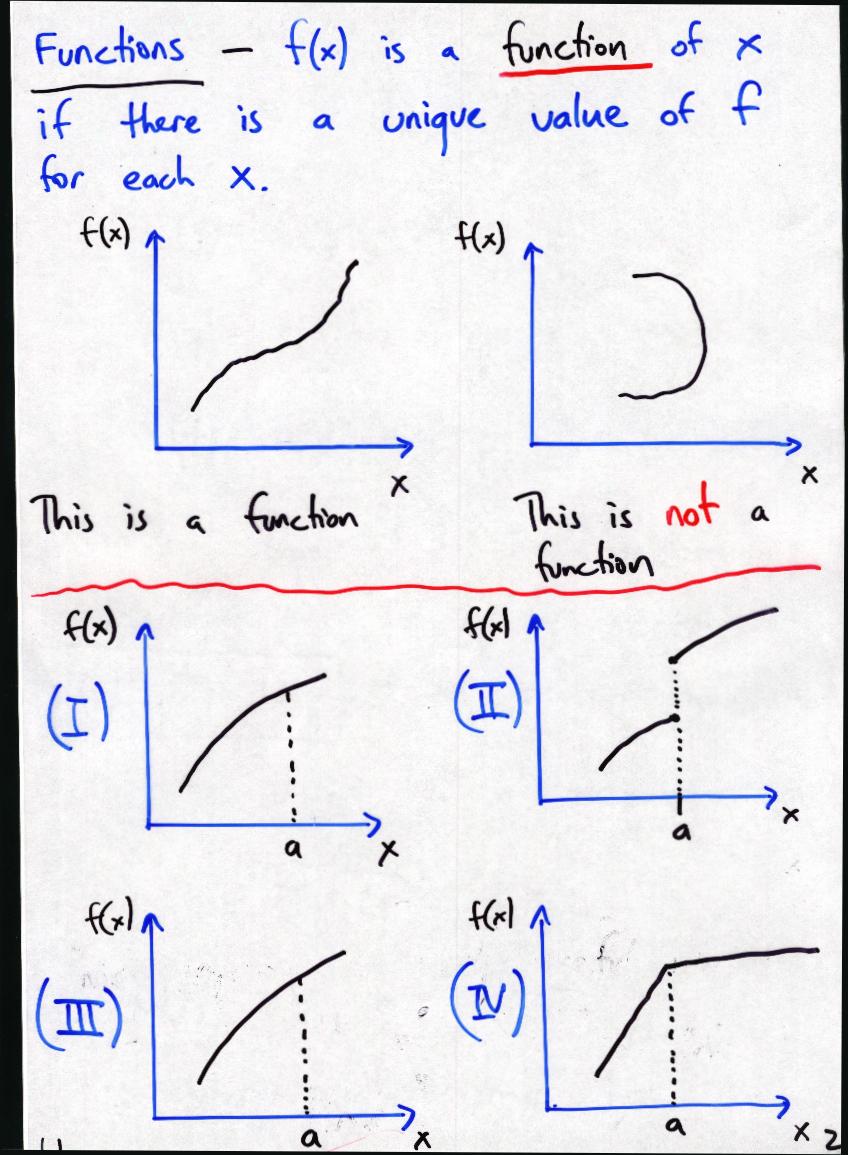 Functions – f(x) is a function of x
if there is a unique value of f
for each x.
f(x)
x
f(x)
x
This is a function
This is not a
function
f(x)
(I)
a
x
f(x)
(II)
a
x
f(x)
(III)
a
x
f(x)
(IV)
a
x
2